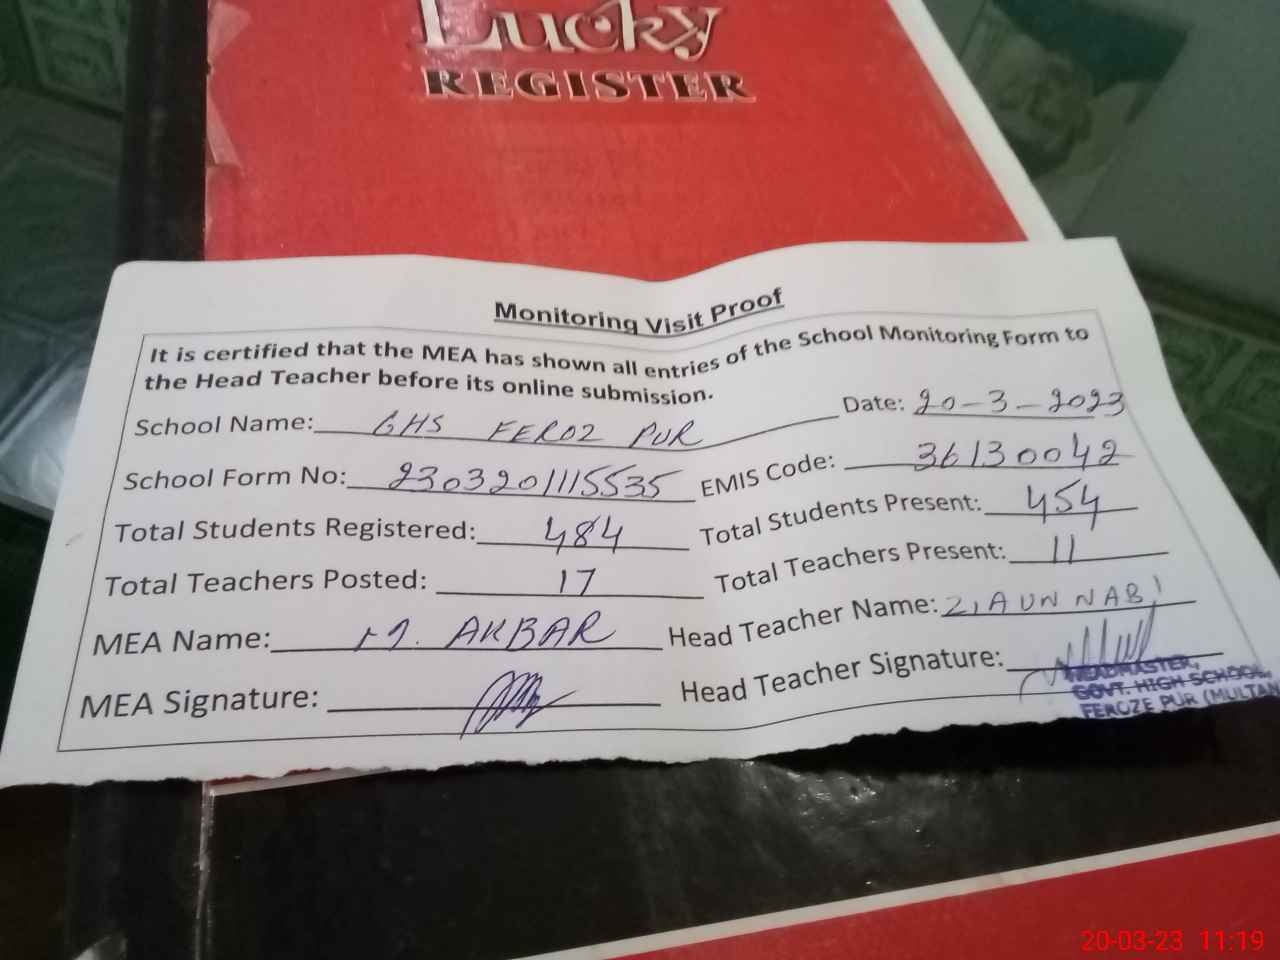 Lucky
REGISTER
Monitoring Visit Proof
It is certified that the MEA has shown all entries of the School Monitoring Form to
the Head Teacher before its online submission.
School Name: GHS FEROZ PUR Date: 20-3-2023
School Form No: 2303201115535 EMIS Code: 36130042
Total Students Registered: 484 Total Students Present: 454
Total Teachers Posted: 17 Total Teachers Present: 11
MEA Name: M. AKBAR Head Teacher Name: ZIA UN NABI
MEA Signature: Head Teacher Signature:
HEADMASTER,
GOVT. HIGH SCHOOL,
FEROZE PUR (MULTAN
20-03-23 11:19